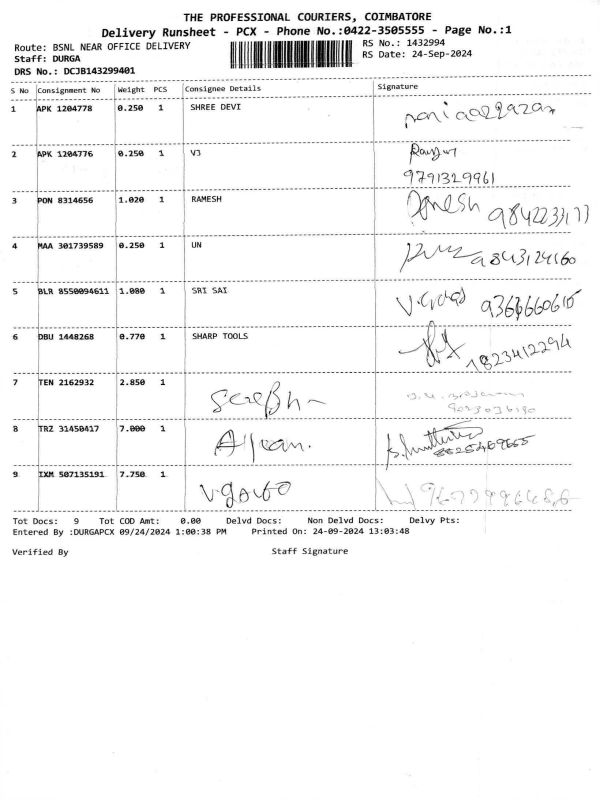 THE PROFESSIONAL COURIERS, COIMBATORE
Delivery Runsheet - PCX - Phone No.:0422-3505555 - Page No.:1
Route: BSNL NEAR OFFICE DELIVERY RS No.: 1432994
Staff: DURGA RS Date: 24-Sep-2024
DRS No.: DCJB143299401
S No Consignment No Weight PCS Consignee Details Signature
1 APK 1204778 0.250 1 SHREE DEVI
2 APK 1204776 0.250 1 V3
9791329961
3 PON 8314656 1.020 1 RAMESH
4 MAA 301739589 0.250 1 UN 9843124160
5 BLR 8550094611 1.080 1 SRI SAI
6 DBU 1448268 0.770 1 SHARP TOOLS
7 TEN 2162932 2.850 1
8 TRZ 31450417 7.000 1
9 IXM 507135191 7.750 1
Tot Docs: 9 Tot COD Amt: 0.00 Delvd Docs: Non Delvd Docs: Delvy Pts:
Entered By :DURGAPCX 09/24/2024 1:00:38 PM Printed On: 24-09-2024 13:03:48
Verified By Staff Signature